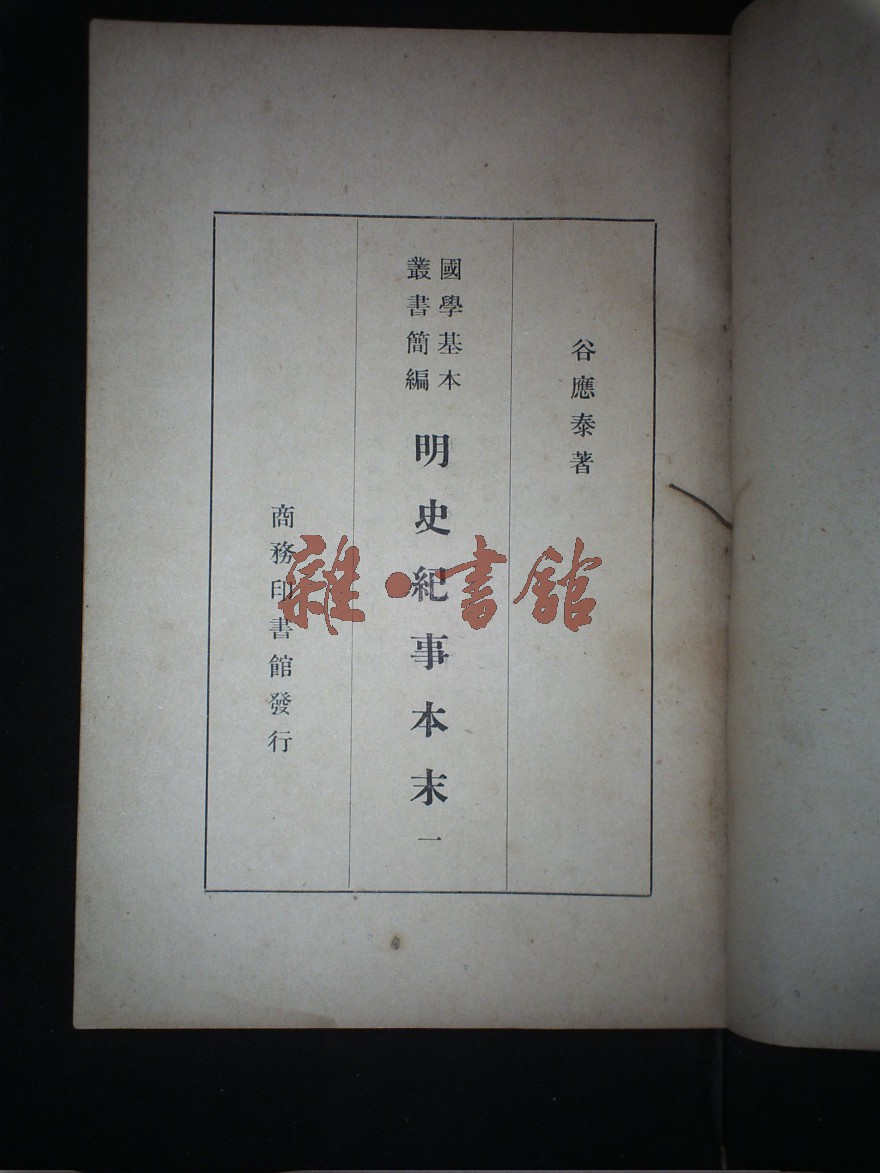 谷應泰著
國學基本
叢書簡編
明史紀事本末 一
商務印書館發行
雜·書館